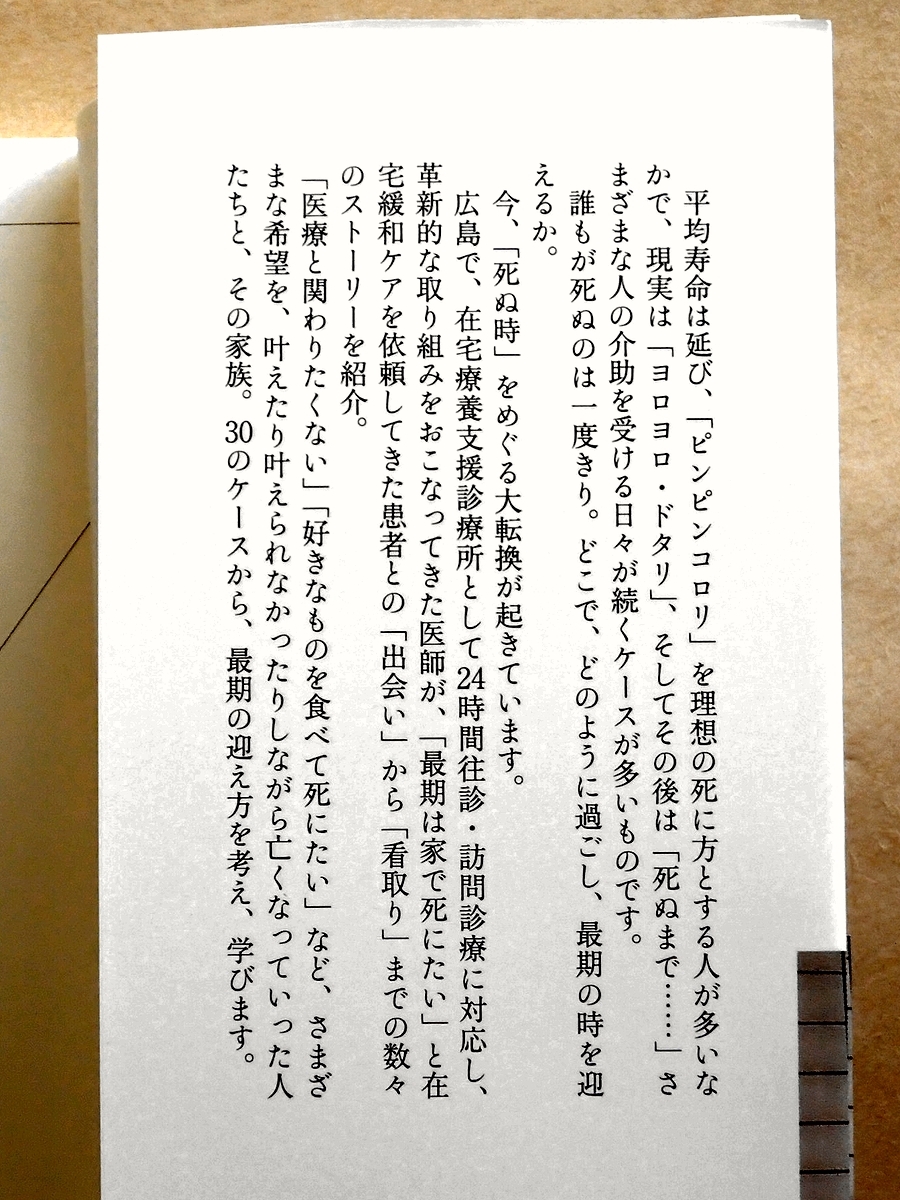 平均寿命は延び、「ピンピンコロリ」を理想の死に方とする人が多いな
かで、現実は「ヨロヨロ・ドタリ」、そしてその後は「死ぬまで……」さ
まざまな人の介助を受ける日々が続くケースが多いものです。
誰もが死ぬのは一度きり。どこで、どのように過ごし、最期の時を迎
えるか。
今、「死ぬ時」をめぐる大転換が起きています。
広島で、在宅療養支援診療所として24時間往診・訪問診療に対応し、
革新的な取り組みをおこなってきた医師が、「最期は家で死にたい」と在
宅緩和ケアを依頼してきた患者との「出会い」から「看取り」までの数々
のストーリーを紹介。
「医療と関わりたくない」「好きなものを食べて死にたい」など、さまざ
まな希望を、叶えたり叶えられなかったりしながら亡くなっていった人
たちと、その家族。30のケースから、最期の迎え方を考え、学びます。